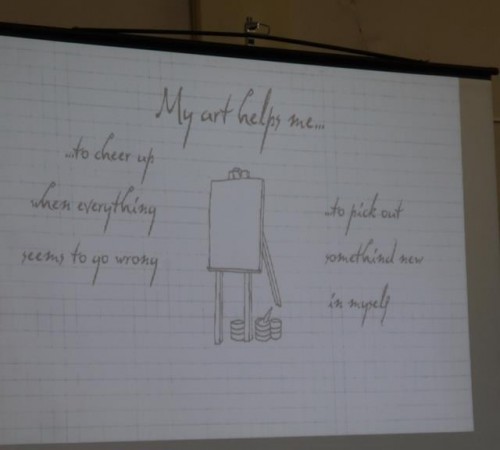 My art helps me...
...to cheer up
when everything
seems to go wrong
...to pick out
somethind new
in myself